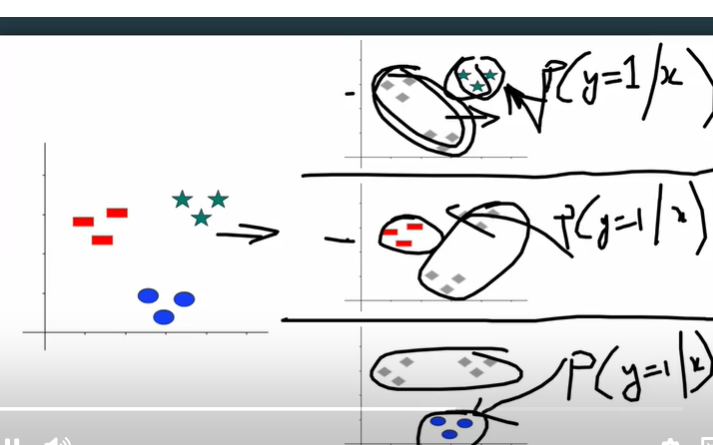 P(y=1/x)
P(y=1/x)
P(y=1/x)